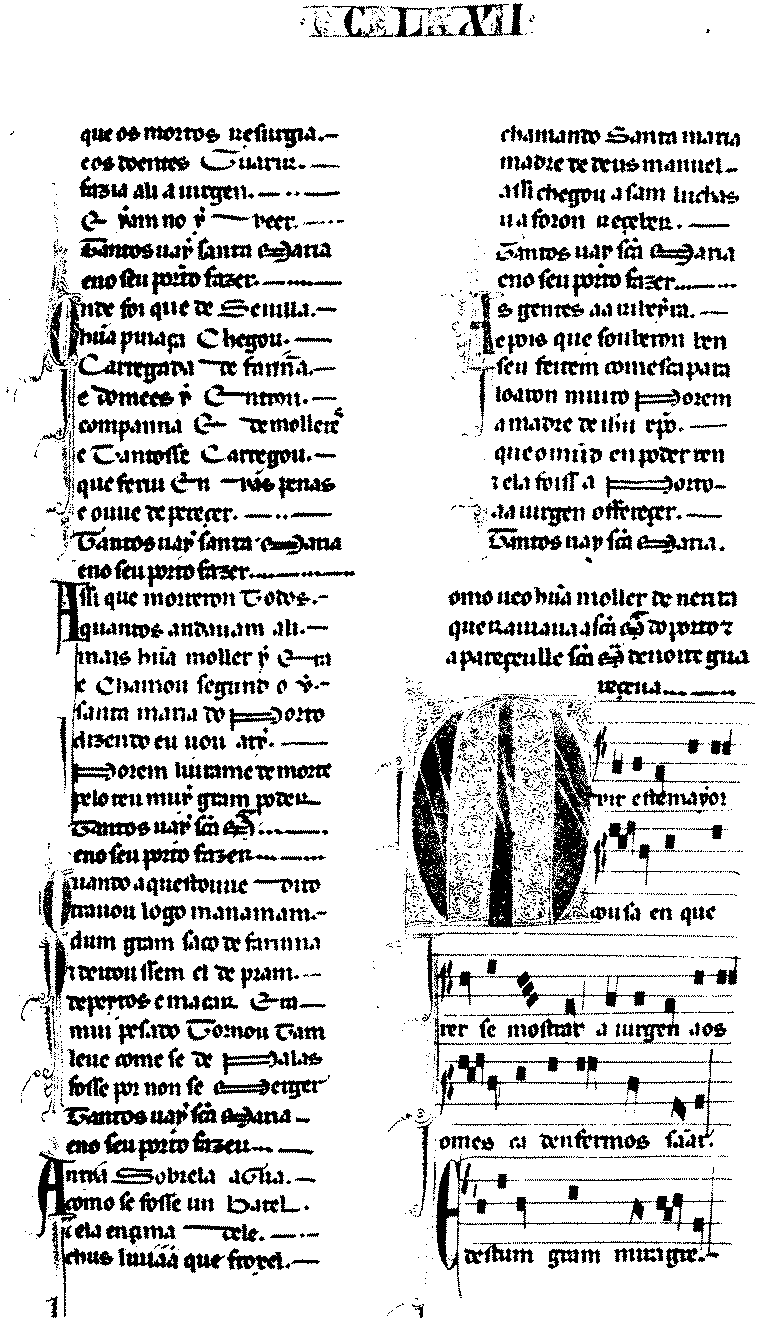 CCLXXII
que os mortos resurgia.
e os doentes Guarir.
fazia ali a uirgen.
E yam no y veer.
Tantos uay santa Maria
eno seu porto fazer.
Onde foi que de Seuilla.
hũa puiaça Chegou.
Carregada de fariña.
e domees y Entrou.
companna E de molleres
e Tantosse Carregou.
que feriu En nas penas
e ouue de pereçer.
Tantos uay santa Maria
eno seu porto fazer.
Assi que morreron Todos.
quantos andauam ali.
mais hũa moller y Era
e Chamou segund o y.
santa maria do Porto
dizendo eu uou aty.
Porem liurame de morte
pelo teu muy gram poder.
Tantos uay sc̃a M̃
eno seu porto fazer.
Quando aquest ouue dito
trauou logo manamam.
dum gram saco de farinna
t deitou ssem el de pram.
de peytos e macar Era
mui pesado Tornou Tam
leue come se de Palas
fosse por non se Merger
Tantos uay sc̃a Maria
eno seu porto fazer.
Antrá Sobrela agũa.
como se fosse un Batel.
t ela en çima dele.
chus liuiáá que froxel.
chamando Santa maria
madre de deus manuel
assi chegou a sam luchas
u a foron reçeber.
Tantos uay sc̃a Maria
eno seu porto fazer.
As gentes da ribeyra.
depois que souberon ben
seu feitem comesta para
loaron muito Porem
a madre de ihu xp̃o.
que o mũd en poder ten
t ela foiss a Porto
aa uirgen offereçer.
Tantos uay sc̃a Maria.
Como ueo hũa moller de
que a sc̃a M̃ do porto t
apareçeulle sc̃a M̃ de noite gua
reçeua.
uir este mayor
cousa en que
rer se mostrar a uirgen aos
omes ca denfermos sãar.
E destum gram miragre.